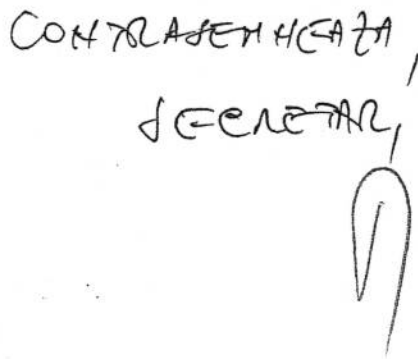 CONTRASEMNEAZA,
SECRETAR,